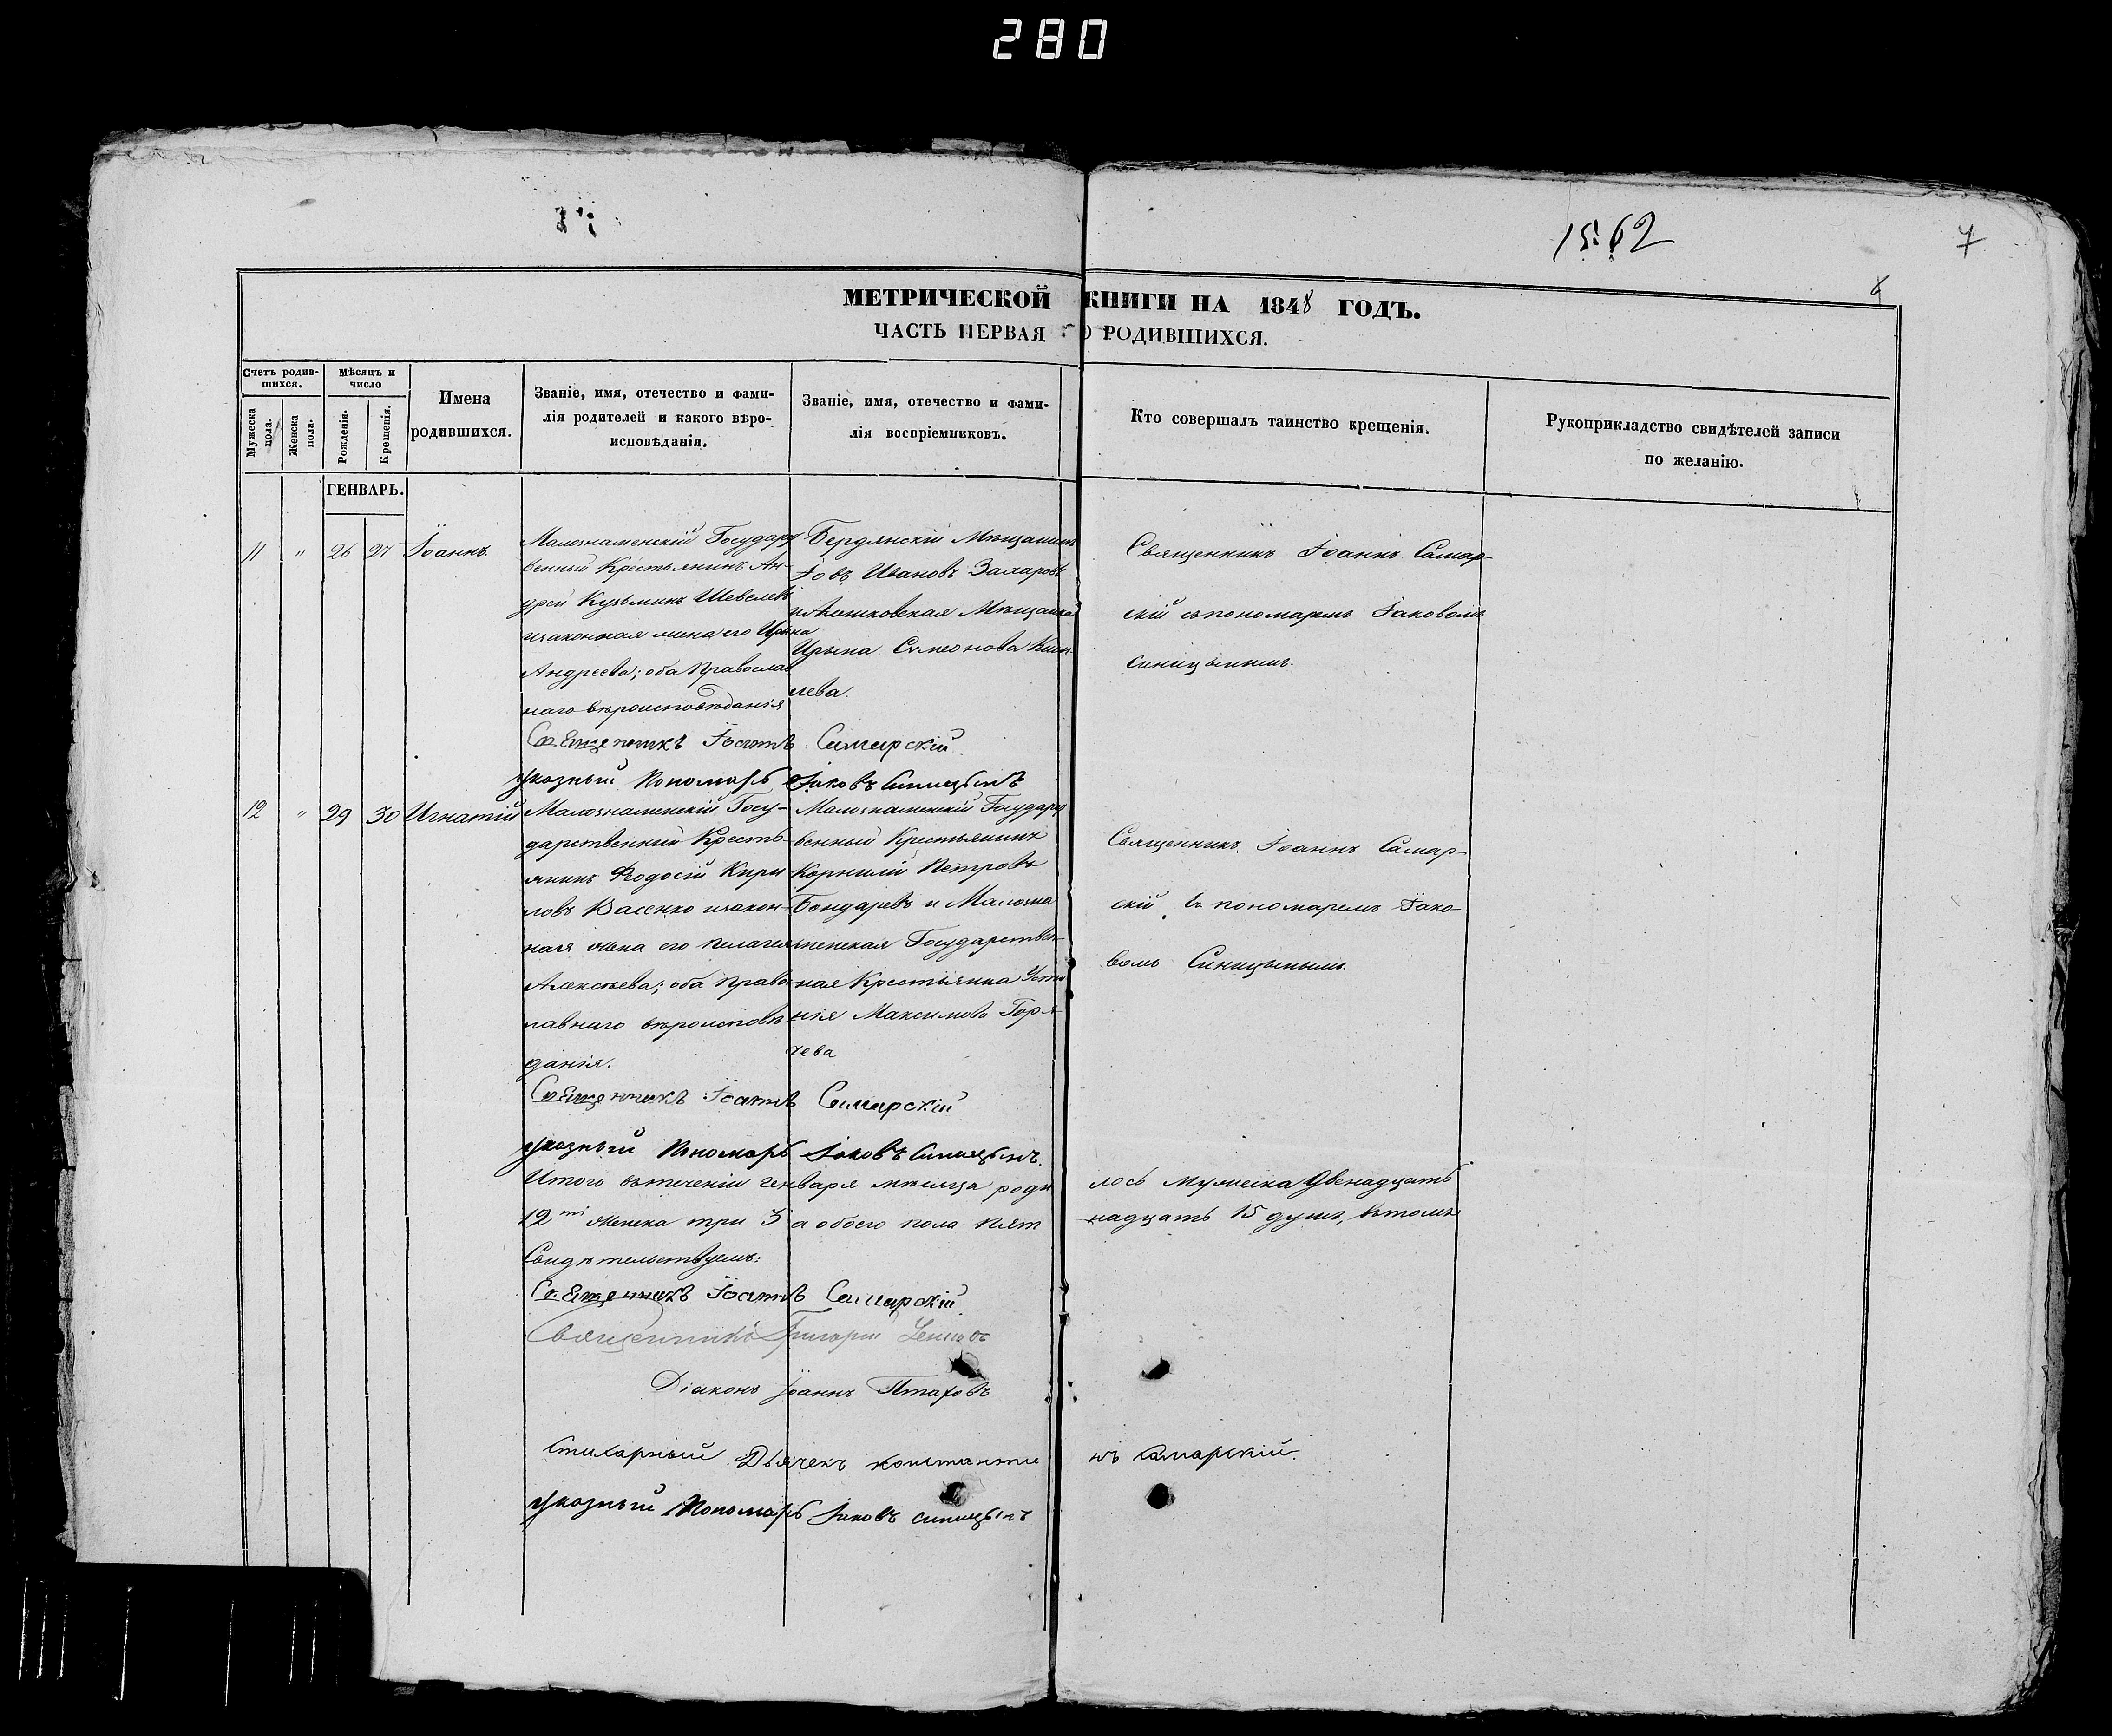 280
1562
7
8
МЕТРИЧЕСКОЙ КНИГИ НА 1848 ГОДЪ.
ЧАСТЬ ПЕРВАЯ О РОДИВШИХСЯ.
Счетъ родив-
шихся.
Мужеска пола.
Женска пола.
Мѣсяцъ и
число
Рожденія.
Крещенія.
Имена
родившихся.
Званіе, имя, отечество и фами-
лія родителей и какого вѣро-
исповѣданія.
Званіе, имя, отечество и фами-
лія воспріемниковъ.
Кто совершалъ таинство крещенія.
Рукоприкладство свидѣтелей записи
по желанію.
ГЕНВАРЬ.
11 " 26 27 Іоаннъ.
Малознаменскій Государст
венный Крестьянинъ Ан-
дрей Кузьминъ Шевелевъ
изаконная жена его Ирина
Андреева; оба Православ
наго вѣроисповѣданія
Бердянскій Мѣщанинъ
Іовъ Ивановъ Захаровъ
Мѣщанка
Ирина Симеонова
лева.
Священникъ Іоаннъ Самар-
скій съпономаремъ Іаковомъ
Синицынымъ.
Священникъ Іоаннъ Самарскій
указный Пономарь Іаковъ Синицынъ
12 " 29 30 Игнатій
Малознаменскій Госу-
дарственный Кресть-
янинъ Феодосій Кири
ловъ Васенко изакон-
ная жена его Пелагея
Алексѣева; оба Правос
лавнаго вѣроисповѣ
данія.
Малознаменскій Государст
венный Крестьянинъ
Корнилій Петровъ
Бондаревъ и Малозна
менская Государствен-
ная Крестьянка Усти
нія Максимова Горя-
чева
Священникъ Іоаннъ Самар-
скій съ пономаремъ Іако-
вомъ Синицынымъ.
Священникъ Іоаннъ Самарскій
указный Пономарь Іаковъ Синицынъ.
Итого втеченіи генваря мѣсяца роди лось мужеска двенадцать
12ть женска три 3 а обоего пола пят надцать 15 душъ, втомъ
Свидѣтельствуемъ:
Священникъ Іоаннъ Самарскій
Священникъ Григорій
Діаконъ Іоаннъ Птаховъ
Стихарный Дьячекъ Константи нъ Самарскій.
указный Пономарь Іаковъ Синицынъ